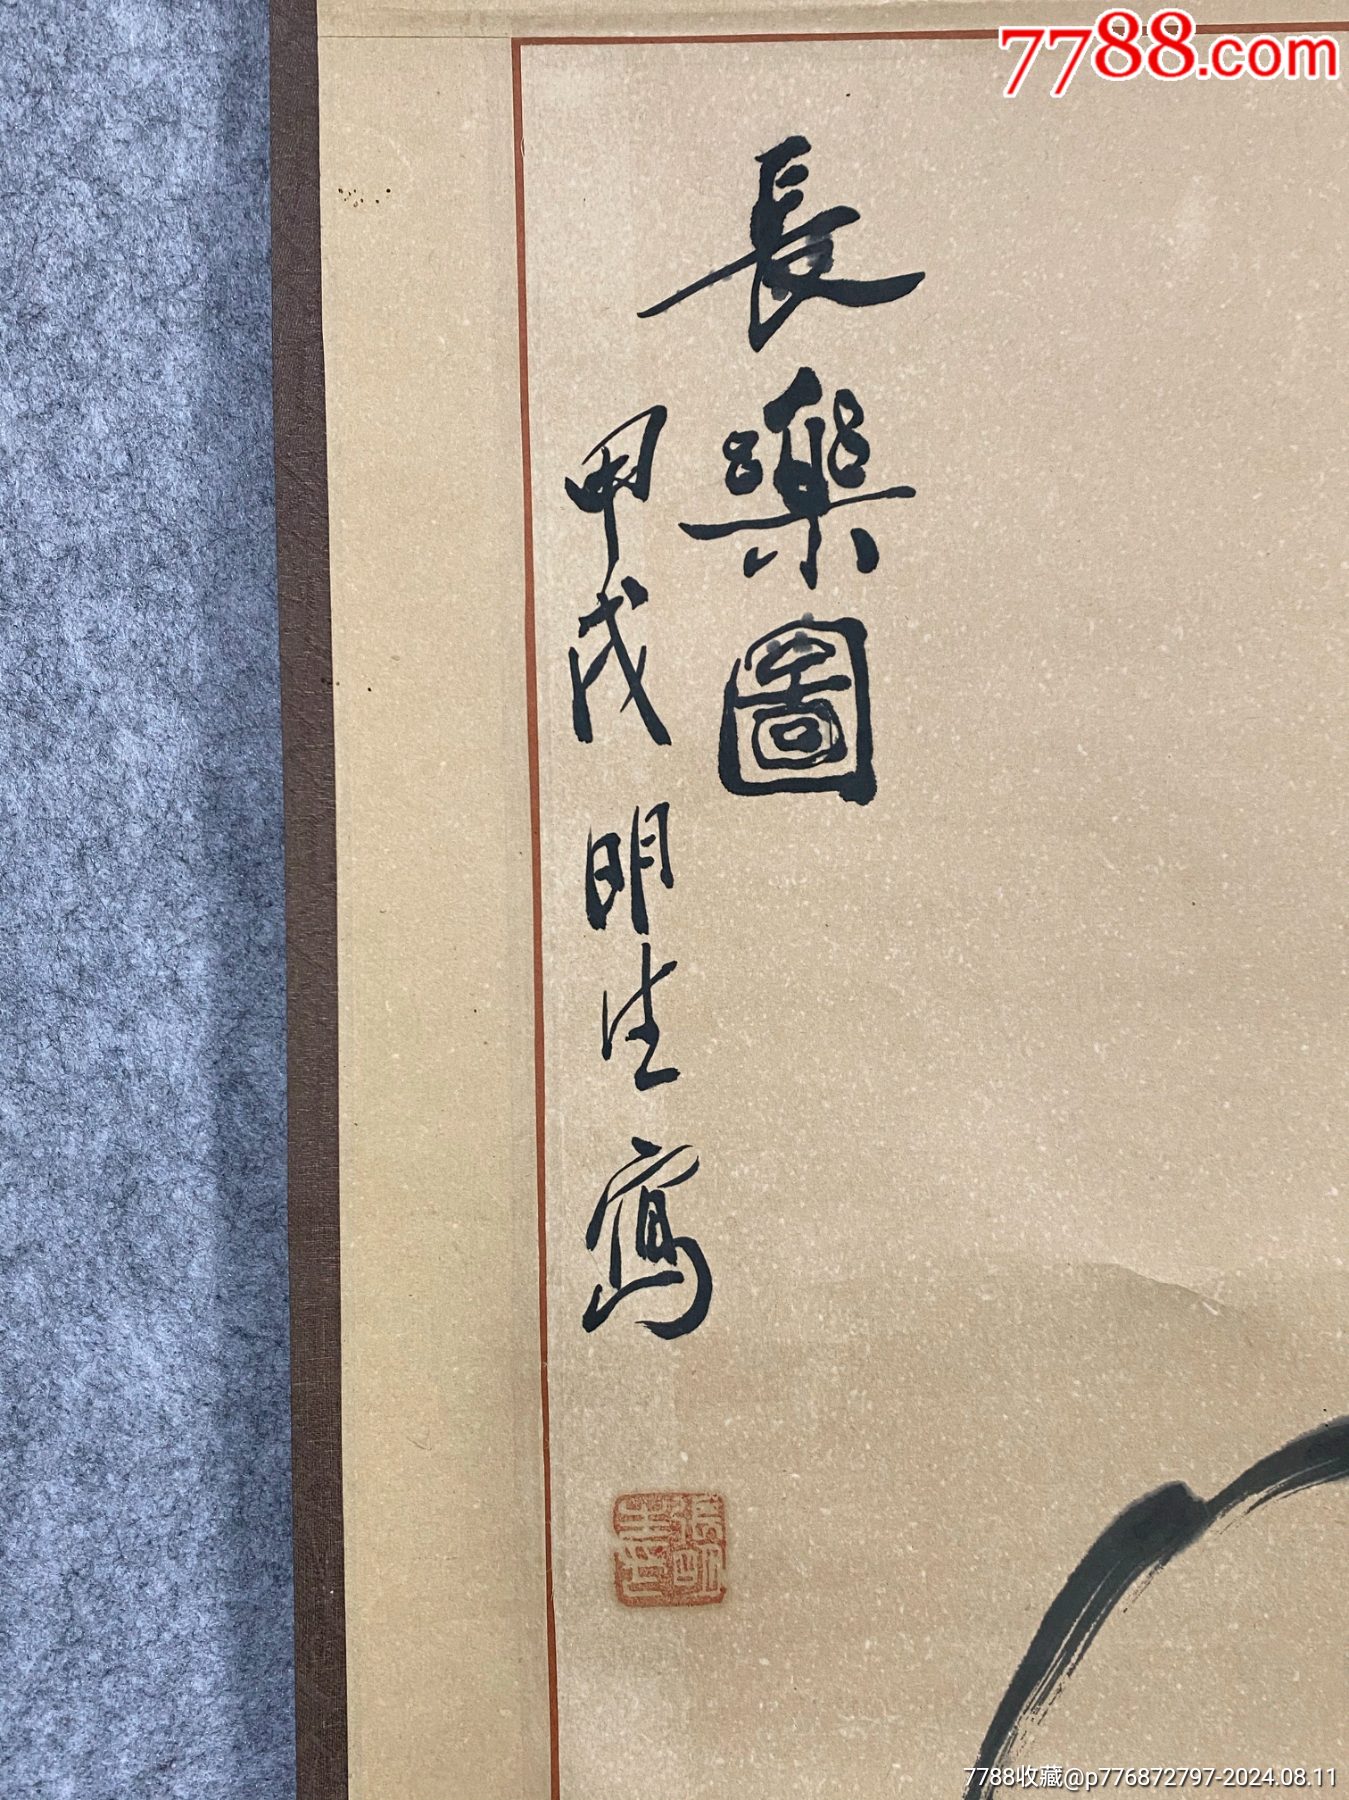 7788.com
長樂圖
甲戌 明生寫
張明生
7788收藏@p776872797-2024.08.11